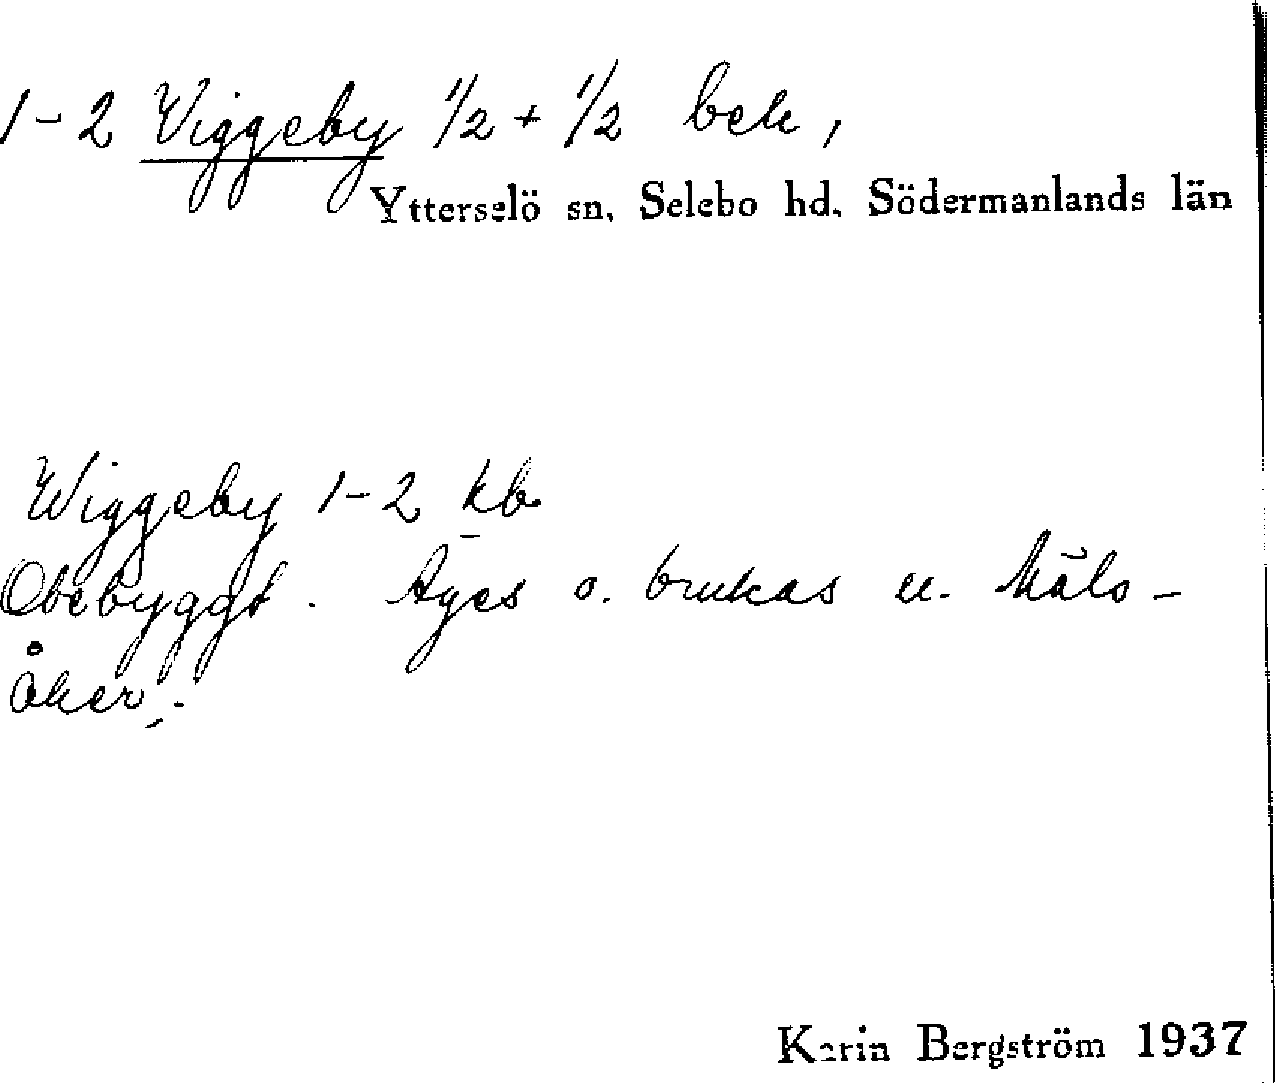 1-2 Viggeby 1/2 + 1/2 bek,
Ytterselö sn. Selebo hd. Södermanlands län
Wiggeby 1-2 kb
Obebyggt. Äges o. brukas u. Mäls-
åker.
Karin Bergström 1937